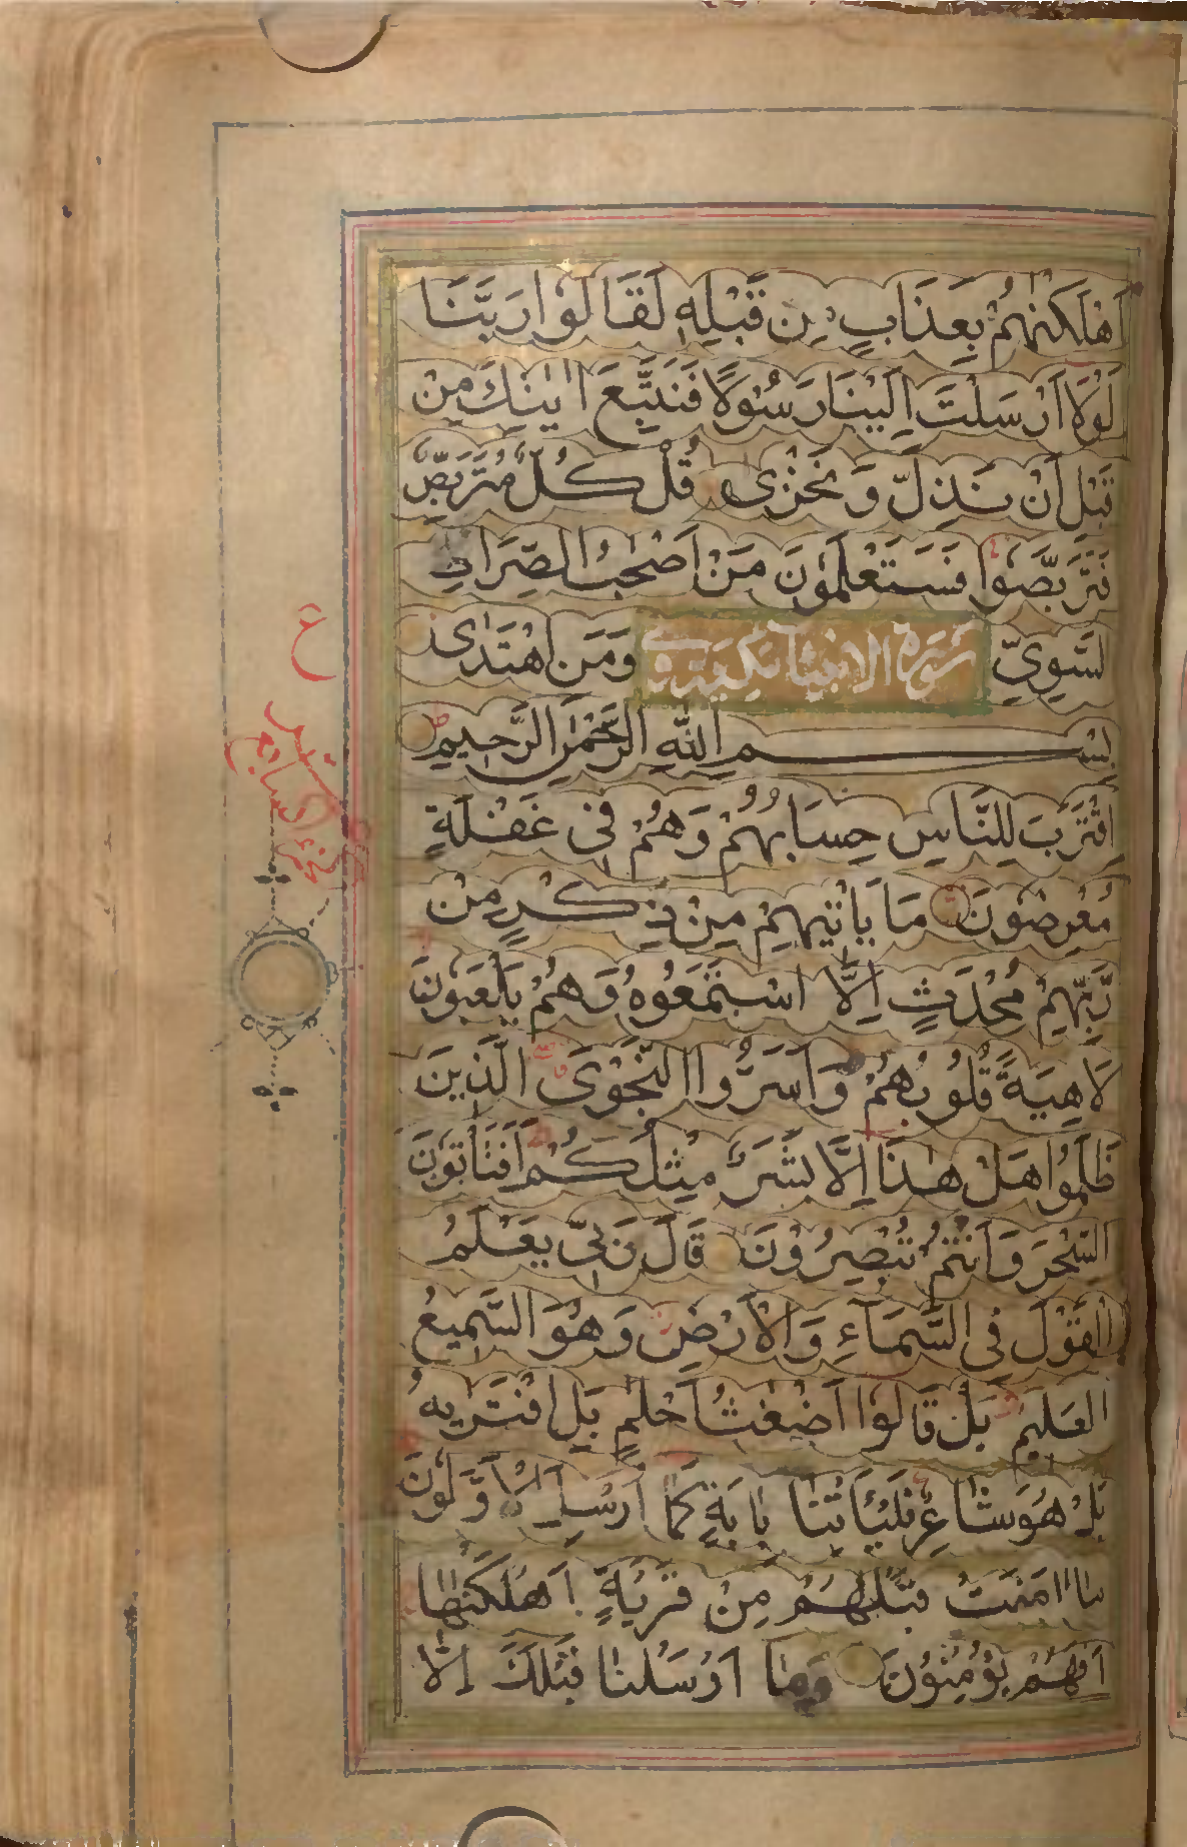 اَهْلَكْنٰهُمْ بِعَذَابٍ مِنْ قَبْلِهِ لَقَالُوا رَبَّنَا
لَوْلَا اَرْسَلْتَ اِلَيْنَا رَسُوْلًا فَنَتَّبِعَ اٰيٰتِكَ مِنْ
قَبْلِ اَنْ نَذِلَّ وَ نَخْزٰى قُلْ كُلٌّ مُّتَرَبِّصٌ
فَتَرَبَّصُوْا فَسَتَعْلَمُوْنَ مَنْ اَصْحٰبُ الصِّرَاطِ
السَّوِيِّ وَمَنِ اهْتَدٰى
سورة الانبيا مكية وهى
بِسْمِ اللّٰهِ الرَّحْمٰنِ الرَّحِيْمِ
اِقْتَرَبَ لِلنَّاسِ حِسَابُهُمْ وَهُمْ فِى غَفْلَةٍ
مُّعْرِضُوْنَ مَا يَاْتِيْهِمْ مِنْ ذِكْرٍ مِنْ
رَّبِّهِمْ مُحْدَثٍ اِلَّا اسْتَمَعُوْهُ وَهُمْ يَلْعَبُوْنَ
لَاهِيَةً قُلُوْبُهُمْ وَاَسَرُّوا النَّجْوَى الَّذِيْنَ
ظَلَمُوْا هَلْ هٰذَا اِلَّا بَشَرٌ مِثْلُكُمْ اَفَتَاْتُوْنَ
السِّحْرَ وَاَنْتُمْ تُبْصِرُوْنَ قَالَ رَبِّى يَعْلَمُ
الْقَوْلَ فِى السَّمَآءِ وَالْاَرْضِ وَهُوَ السَّمِيْعُ
العَلِيْمُ بَلْ قَالُوْا اَضْغٰثُ اَحْلٰمٍ بَلِ افْتَرٰيهُ
بَلْ هُوَ شَاعِرٌ فَلْيَاْتِنَا بِاٰيَةٍ كَمَا اُرْسِلَ الْاَوَّلُوْنَ
مَا اٰمَنَتْ قَبْلَهُمْ مِنْ قَرْيَةٍ اَهْلَكْنٰهَا
اَفَهُمْ يُؤْمِنُوْنَ وَمَا اَرْسَلْنَا قَبْلَكَ اِلَّا
ع